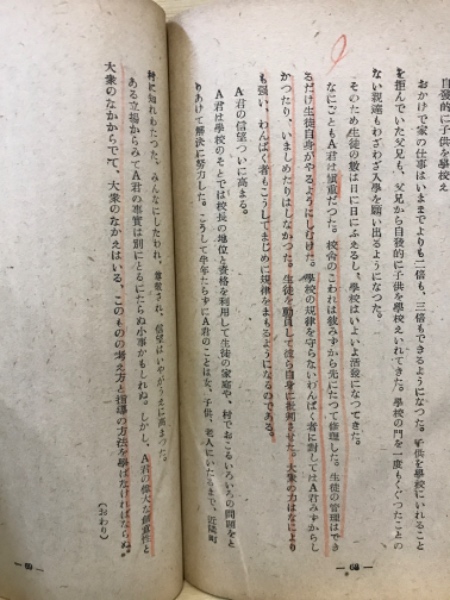 自發的に子供を學校え
おかけで家の仕事はいままでよりも二倍も、三倍もできるようになつた。子供を學校にいれること
を拒んでいた父兄も、父兄から自發的に子供を學校えいれてきた。學校の門を一度もくぐつたことの
ない親達もわざわざ入學を願い出るようになつた。
そのため生徒の數は日に日にふえるし、學校はいよいよ活發になつてきた。
なにごともA君は愼重だつた。校舎のこわれは彼みずから先にたつて修理した。生徒の管理はでき
るだけ生徒自身がやるようにしむけた。學校の規律を守らないわんぱく者に對してはA君みずからし
かつたり、いましめたりはしなかつた。生徒を動員して彼ら自身に批判させた。大衆の力はなにより
も强い、わんぱく者もこうしてまじめに規律をまもるようになるのである。
A君の信望ついに高まる。
A君は學校のそとでは校長の地位と資格を利用して生徒の家庭や、村でおこるいろいろの問題をと
りあけて解決に努力した。こうして半年たらずにA君のことは女、子供、老人にいたるまで、近隣町
村に知れわたつた。みんなにしたわれ、尊敬され、信望はいやがうえに高まつた。
ある立場からみてA君の事實は別にとるにたらぬ小事かもしれぬ。しかし、A君の偉大な創意性と
大衆のなかからでて、大衆のなかえはいる、このものの考え方と指導の方法を學ばなければならぬ。
(おわり)
— 68 —
— 69 —